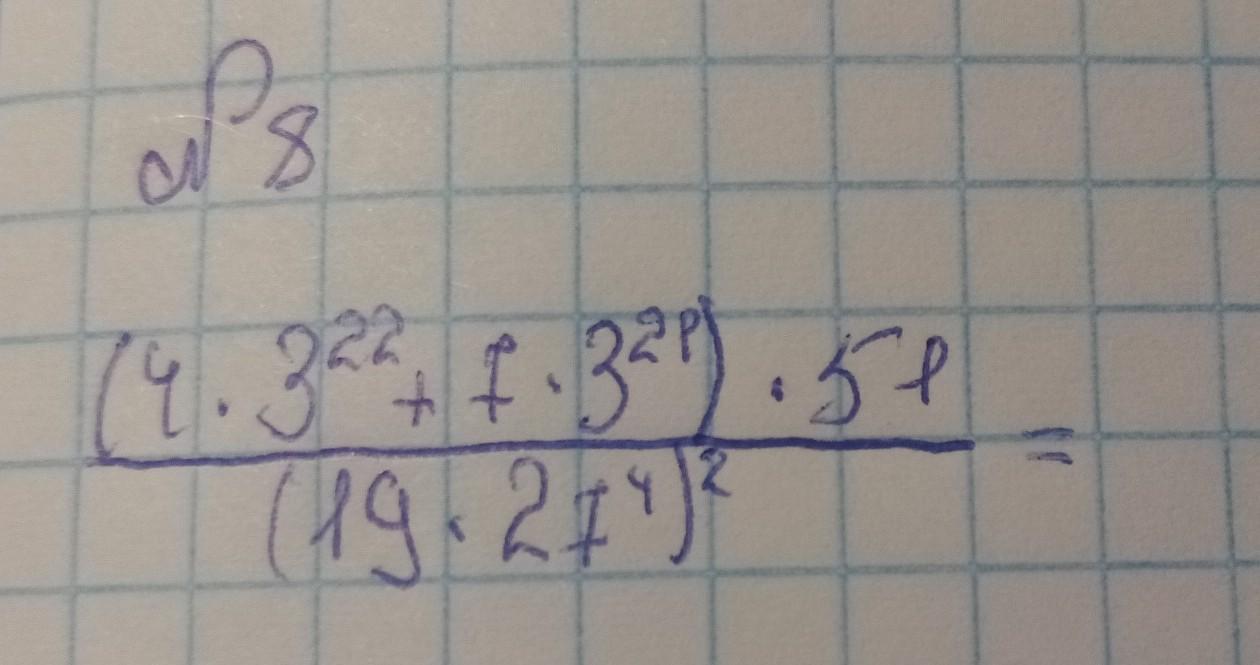 №8
(4 · 3²² + 7 · 3²¹) · 57
(19 · 27⁴)² =